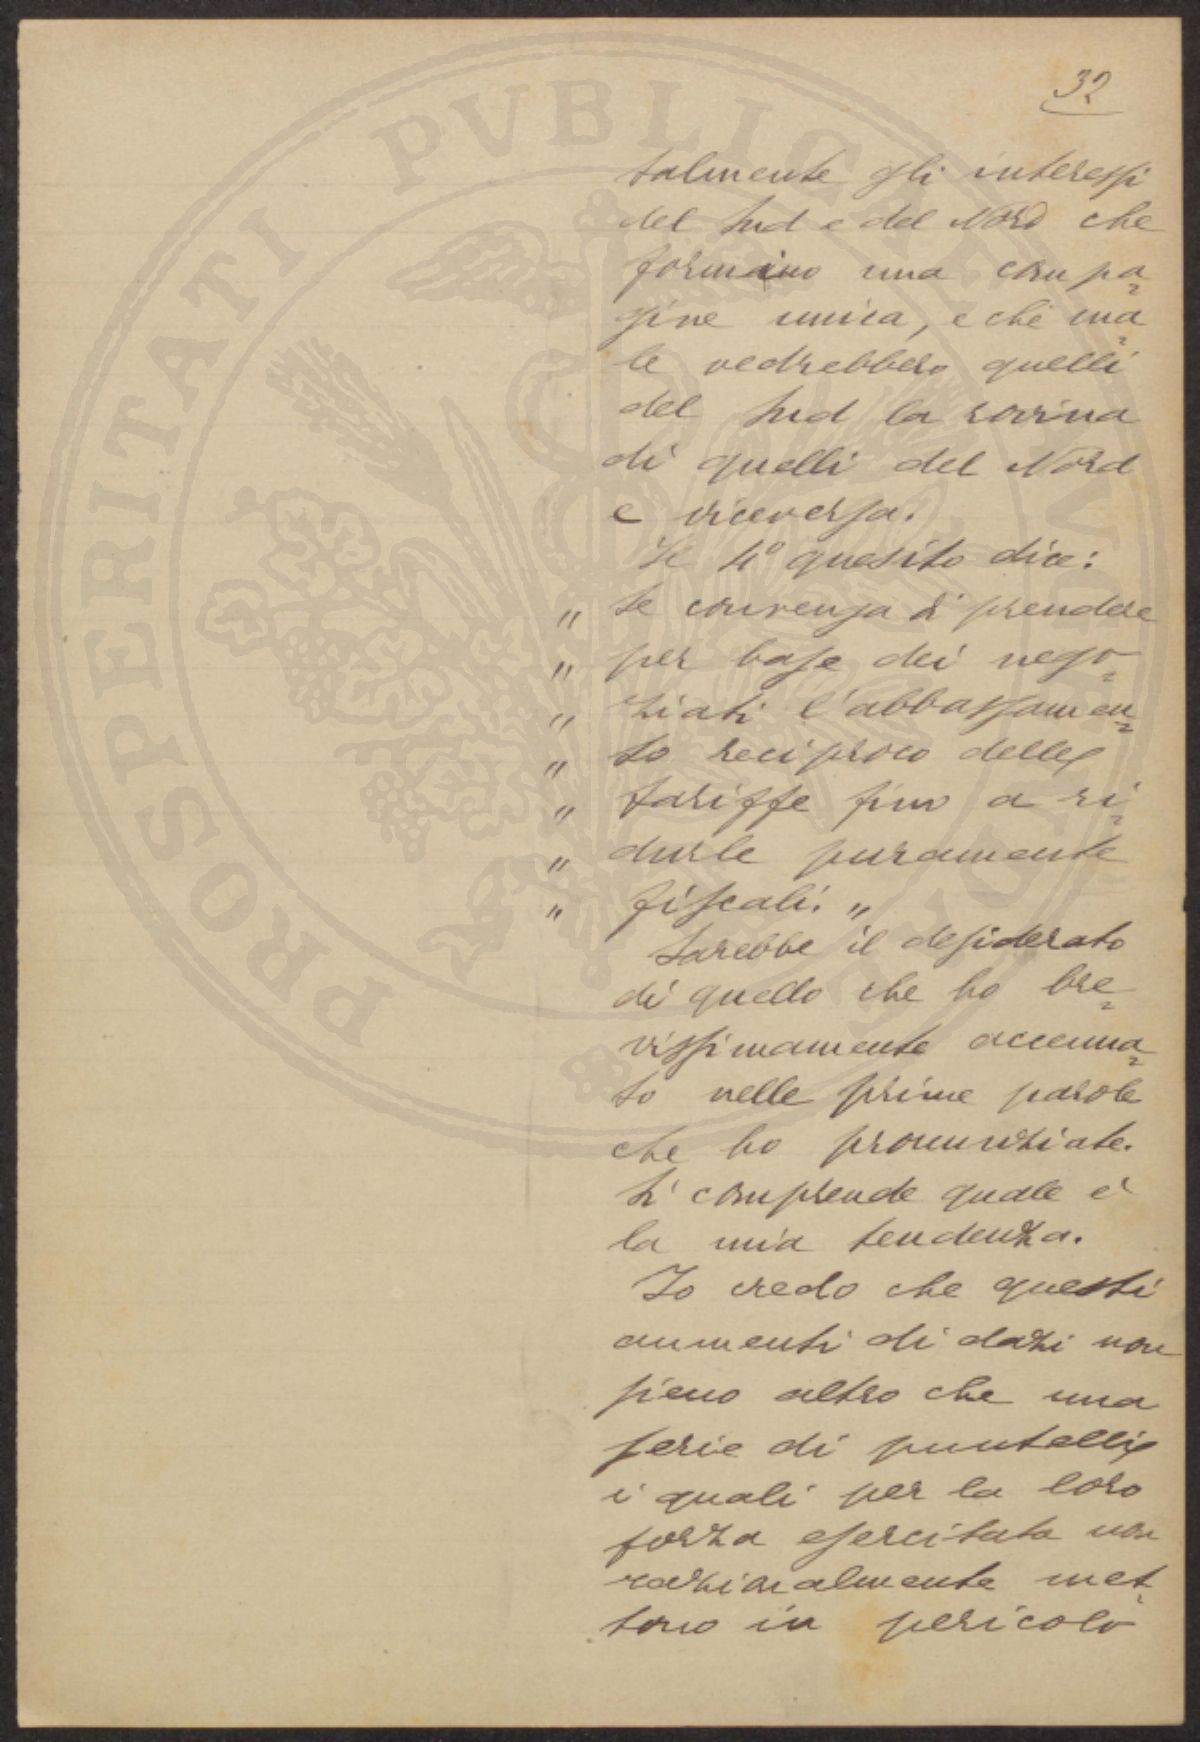 32
talmente gli interessi
del Sud e del Nord che
formano una compa=
gine unica, e che ma=
le vedrebbero quelli
del Sud la rovina
di quelli del Nord
e viceversa.
Il 4° quesito dice:
" Se convenga di prendere
" per base dei nego=
" ziati l'abbassamen=
" to reciproco delle
" tariffe fino a ri=
" durle puramente
" fiscali. "
Sarebbe il desiderato
di quello che ho bre=
vissimamente accenna=
to nelle prime parole
che ho pronunziate.
Si comprende quale è
la mia tendenza.
Io credo che questi
aumenti di dazi non
sieno altro che una
serie di puntelli
i quali per la loro
forza esercitata non
razionalmente met=
tono in pericolo
PROSPERITATI PVBLICAE AVGENDAE